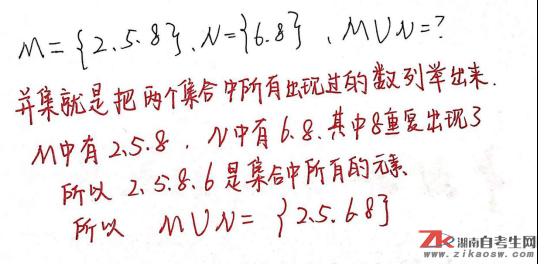 M={2.5.8}、N={6.8}、M∪N=?
并集就是把两个集合中所有出现过的数列举出来.
M中有2.5.8. N中有6.8.其中8重复出现了
所以 2.5.8.6是集合中所有的元素.
所以 M∪N= {2.5.6.8}
ZK湖南自考生网
www.zikaosw.com